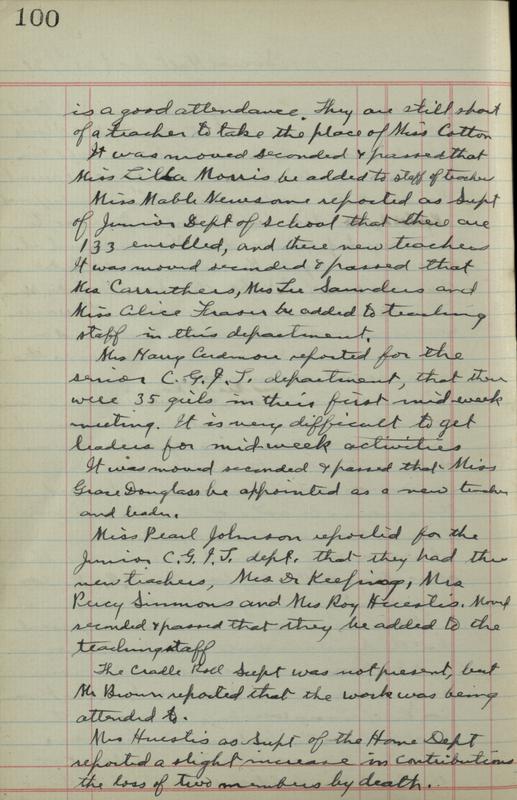 100
is a good attendance. They are still short
of a teacher to take the place of Miss Cotton
It was moved seconded & passed that
Miss Lilla Morris be added to staff of teacher
Miss Mable Newsome reported as Supt
of Junior Dept of school that there are
133 enrolled, and three new teachers
It was moved seconded & passed that
Mrs Carruthers, Mrs Lee Saunders and
Miss Alice Fraser be added to teaching
staff in this department.
Mrs Harry reported for the
senior C.G.I.T. department, that there
were 35 girls in their first mid-week
meeting. It is very difficult to get
leaders for midweek activities
It was moved seconded & passed that Miss
Grace Douglass be appointed as a new teacher
and leader.
Miss Pearl Johnson reported for the
Junior C.G.I.T. dept. that they had three
new teachers, Mrs Dr Keeping, Mrs
Percy Simmons and Mrs Roy Huestis. Moved
seconded & passed that they be added to the
teaching staff
The Cradle Roll Supt was not present, but
Mr Brown reported that the work was being
attended to.
Mrs Huestis as Supt of the Home Dept
reported a slight increase in contributions
the loss of two members by death.